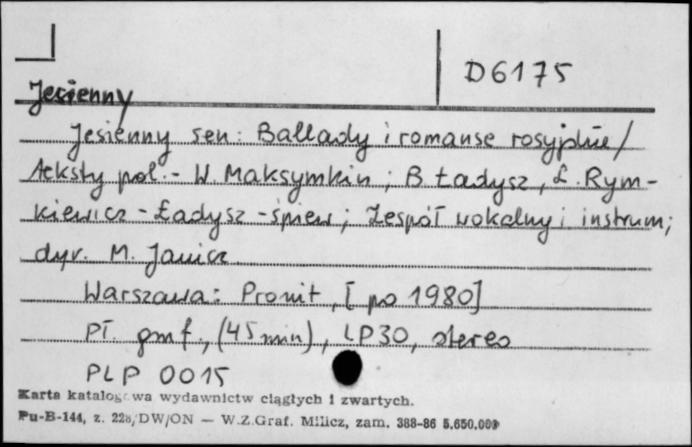 D6175
Jesienny
Jesienny sen: Ballady i romanse rosyjskie /
teksty pol. - W. Maksymkin ; B. Ładysz, L. Rym-
kiewicz - Ładysz - śpiew ; Zespół wokalny i instrum ;
dyr. M. Janicz
Warszawa : Pronit, [po 1980]
Pł. gmf., (45 min), LP30, stereo
PLP 0015
Karta katalogowa wydawnictw ciągłych i zwartych.
Pu-B-144, z. 228/DW/ON — W.Z.Graf. Milicz, zam. 388-86 5.650.000